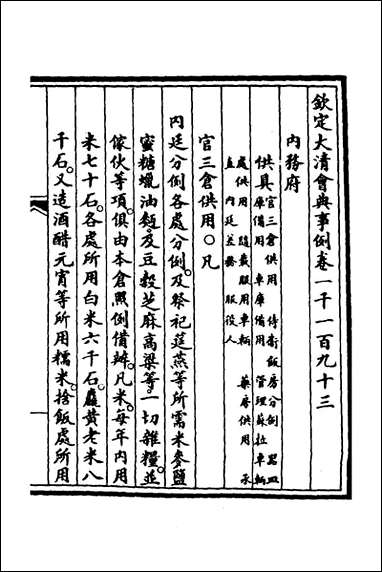 欽定大清會典事例卷一千一百九十三
內務府
供具 官三倉供用 侍衛飯房分例 器皿
庫備用 車庫備用 管理蘇拉車輛
處供用 隨載服用車輛 藥房供用 承
直內廷差務服役人
官三倉供用〇凡
內廷分例各處分例及祭祀筵燕等所需米麥鹽
蜜糖蠟油麪及豆穀芝麻高粱等一切雜糧並
傢伙等項俱由本倉照例備辦凡米每年內用
米七十石各處所用白米六千石黃老米八
千石又造酒醋元宵等所用糯米捨飯處所用